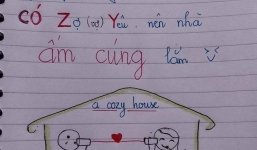 CÓ Zợ (vợ) Yêu. nên nhà
ấm cúng lắm
a cozy house